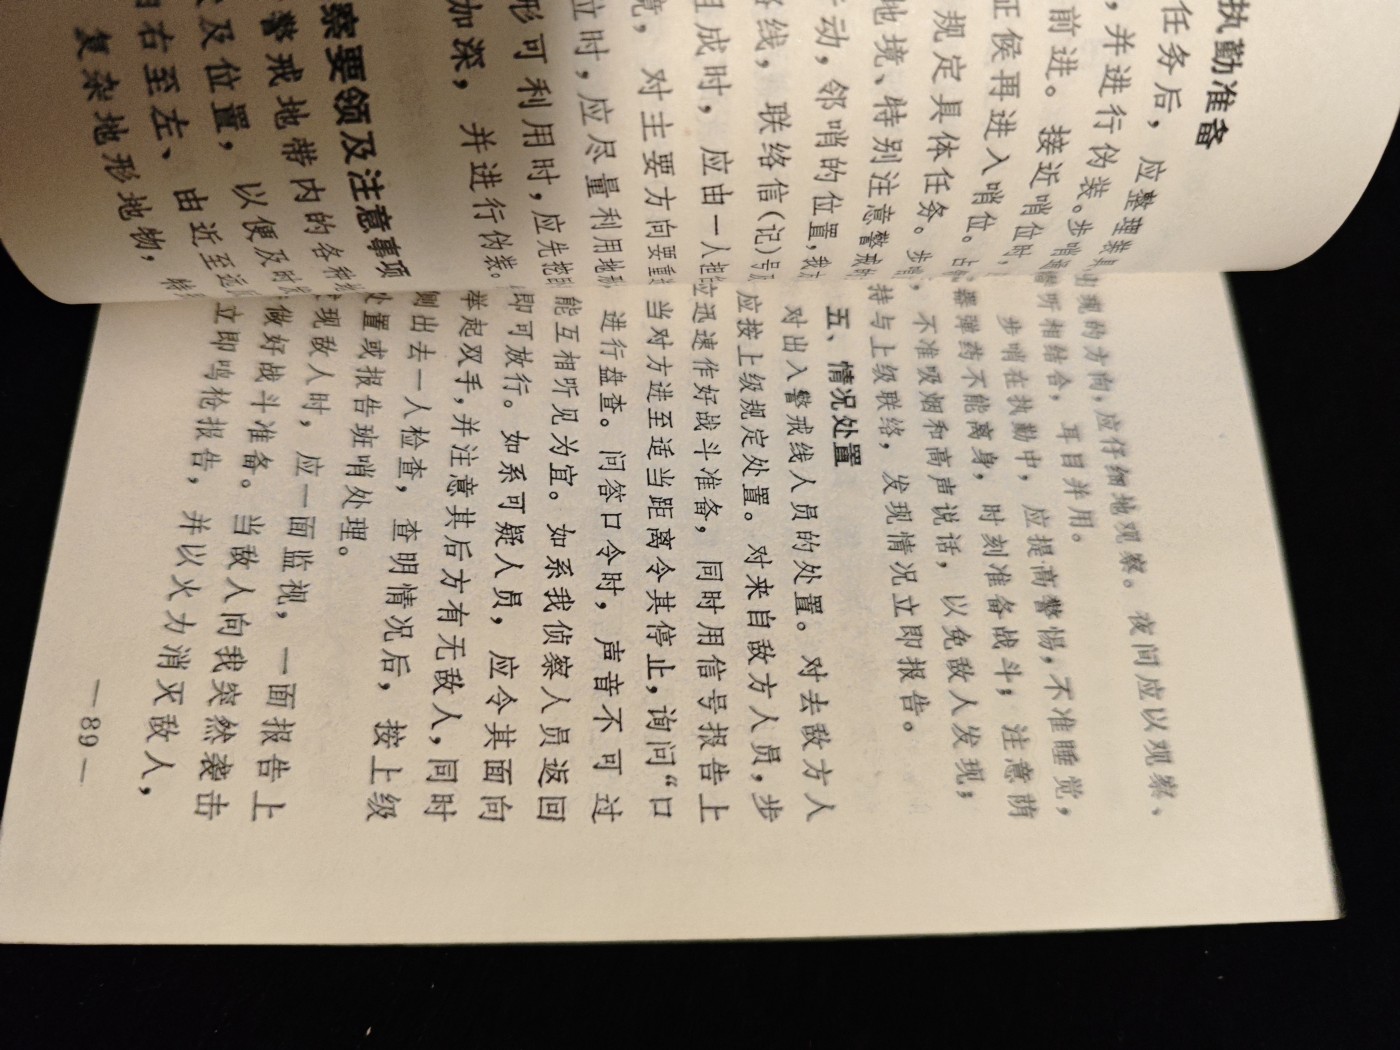 执勤准备
任务后，应整理装具
，并进行伪装。步哨
前进。接近哨位时
证候再进入哨位。占
规定具体任务。步哨
地境、特别注意警戒的
动，邻哨的位置，我
路线，联络信（记）号及
组成时，应由一人担
境，对主要方向要重
立时，应尽量利用地形
形可利用时，应先挖
加深，并进行伪装。
察要领及注意事项
警戒地带内的各种
及位置，以便及时发
右至左、由近至远
复杂地形地物，特
出现的方向，应仔细地观察。夜间应以观察、
听相结合，耳目并用。
步哨在执勤中，应提高警惕，不准睡觉，
器弹药不能离身，时刻准备战斗；注意荫
，不准吸烟和高声说话，以免敌人发现；
持与上级联络，发现情况立即报告。
五、情况处置
对出入警戒线人员的处置。对去敌方人
应按上级规定处置。对来自敌方人员，步
应迅速作好战斗准备，同时用信号报告上
当对方进至适当距离令其停止，询问“口
进行盘查。问答口令时，声音不可过
能互相听见为宜。如系我侦察人员返回
即可放行。如系可疑人员，应令其面向
举起双手，并注意其后方有无敌人，同时
则出去一人检查，查明情况后，按上级
处置或报告班哨处理。
发现敌人时，应一面监视，一面报告上
做好战斗准备。当敌人向我突然袭击
立即鸣枪报告，并以火力消灭敌人，
—89—